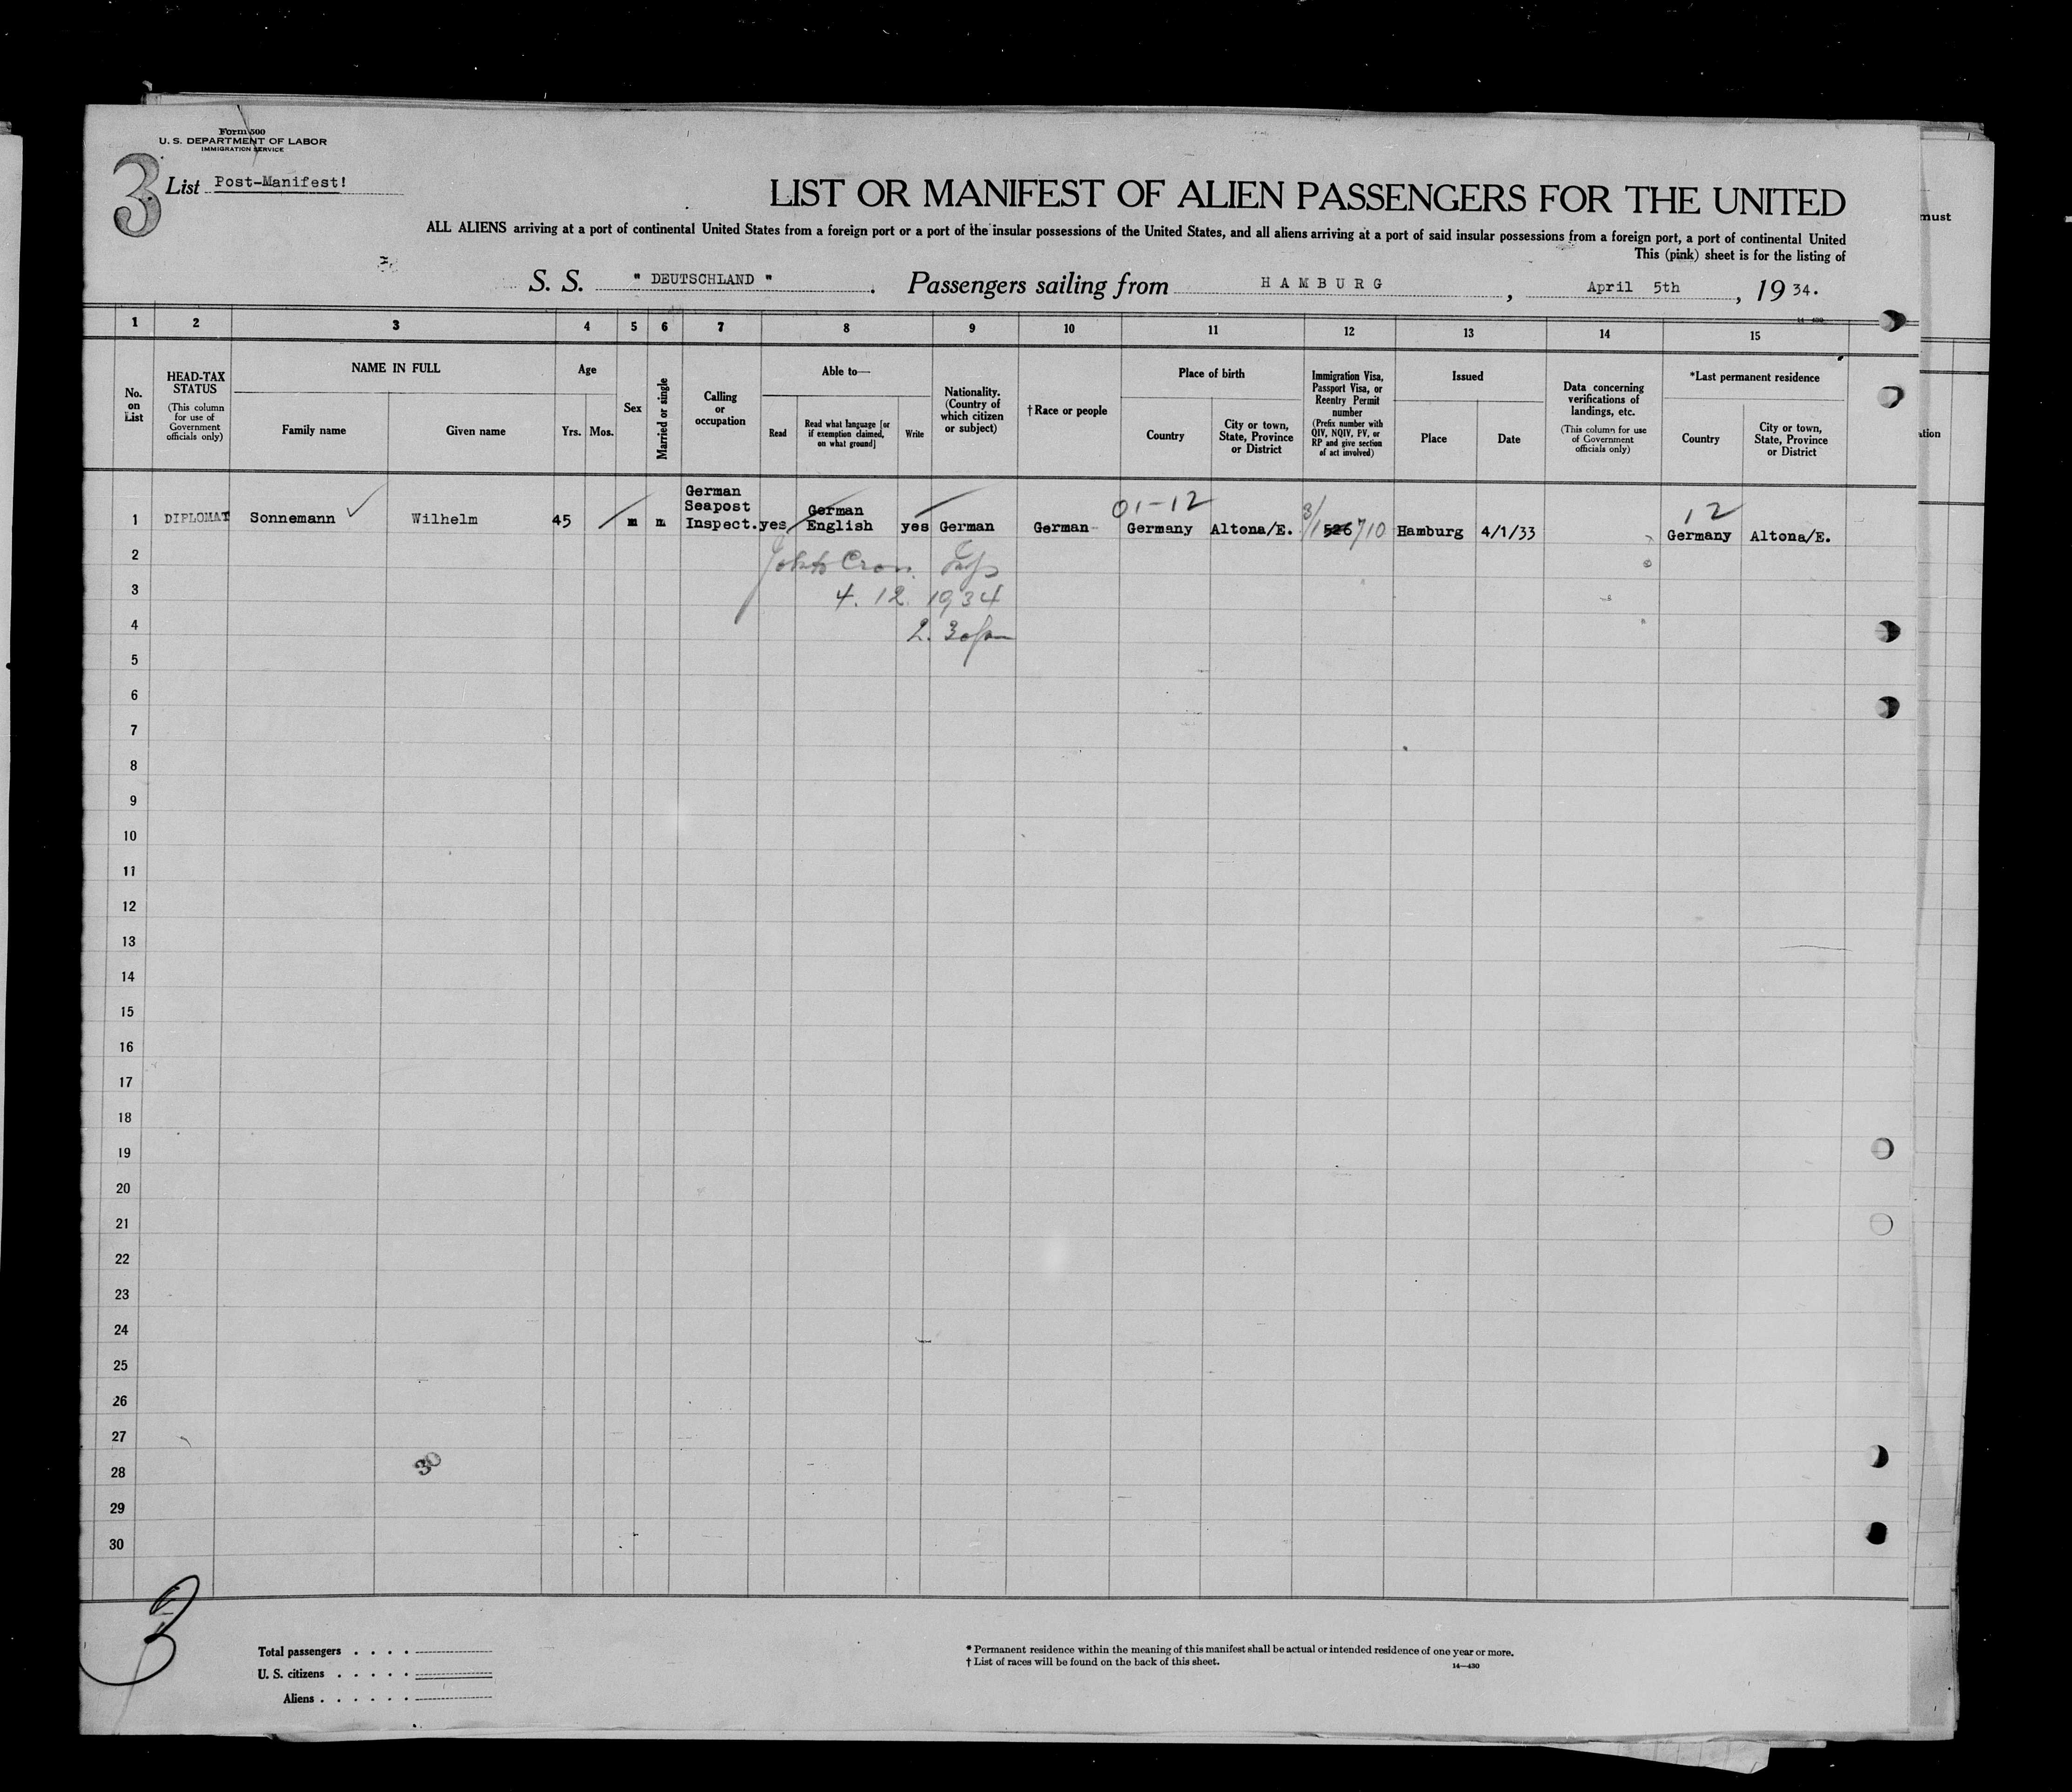 Form 500
U. S. DEPARTMENT OF LABOR
IMMIGRATION SERVICE
3
List Post-Manifest!
LIST OR MANIFEST OF ALIEN PASSENGERS FOR THE UNITED
ALL ALIENS arriving at a port of continental United States from a foreign port or a port of the insular possessions of the United States, and all aliens arriving at a port of said insular possessions from a foreign port, a port of continental United
This (pink) sheet is for the listing of
must
S. S. " DEUTSCHLAND " . Passengers sailing from HAMBURG , April 5th , 19 34.
14—430
1 2 3 4 5 6 7 8 9 10 11 12 13 14 15
No. on List
HEAD-TAX STATUS
(This column for use of Government officials only)
NAME IN FULL
Family name
Given name
Age
Yrs.
Mos.
Sex
Married or single
Calling or occupation
Able to—
Read
Read what language [or if exemption claimed, on what ground]
Write
Nationality. (Country of which citizen or subject)
†Race or people
Place of birth
Country
City or town, State, Province or District
Immigration Visa, Passport Visa, or Reentry Permit number
(Prefix number with QIV, NQIV, PV, or RP and give section of act involved)
Issued
Place
Date
Data concerning verifications of landings, etc.
(This column for use of Government officials only)
*Last permanent residence
Country
City or town, State, Province or District
ation
01-12
12
1 DIPLOMAT Sonnemann Wilhelm 45 m m German Seapost Inspect. yes German English yes German German Germany Altona/E. Hamburg 4/1/33 Germany Altona/E.
2
3 4. 12. 1934
4 2. 30 pm
5
6
7
8
9
10
11
12
13
14
15
16
17
18
19
20
21
22
23
24
25
26
27
28 30
29
30
3
Total passengers . . . .
U. S. citizens . . . . .
Aliens . . . . . .
* Permanent residence within the meaning of this manifest shall be actual or intended residence of one year or more.
† List of races will be found on the back of this sheet.
14—430